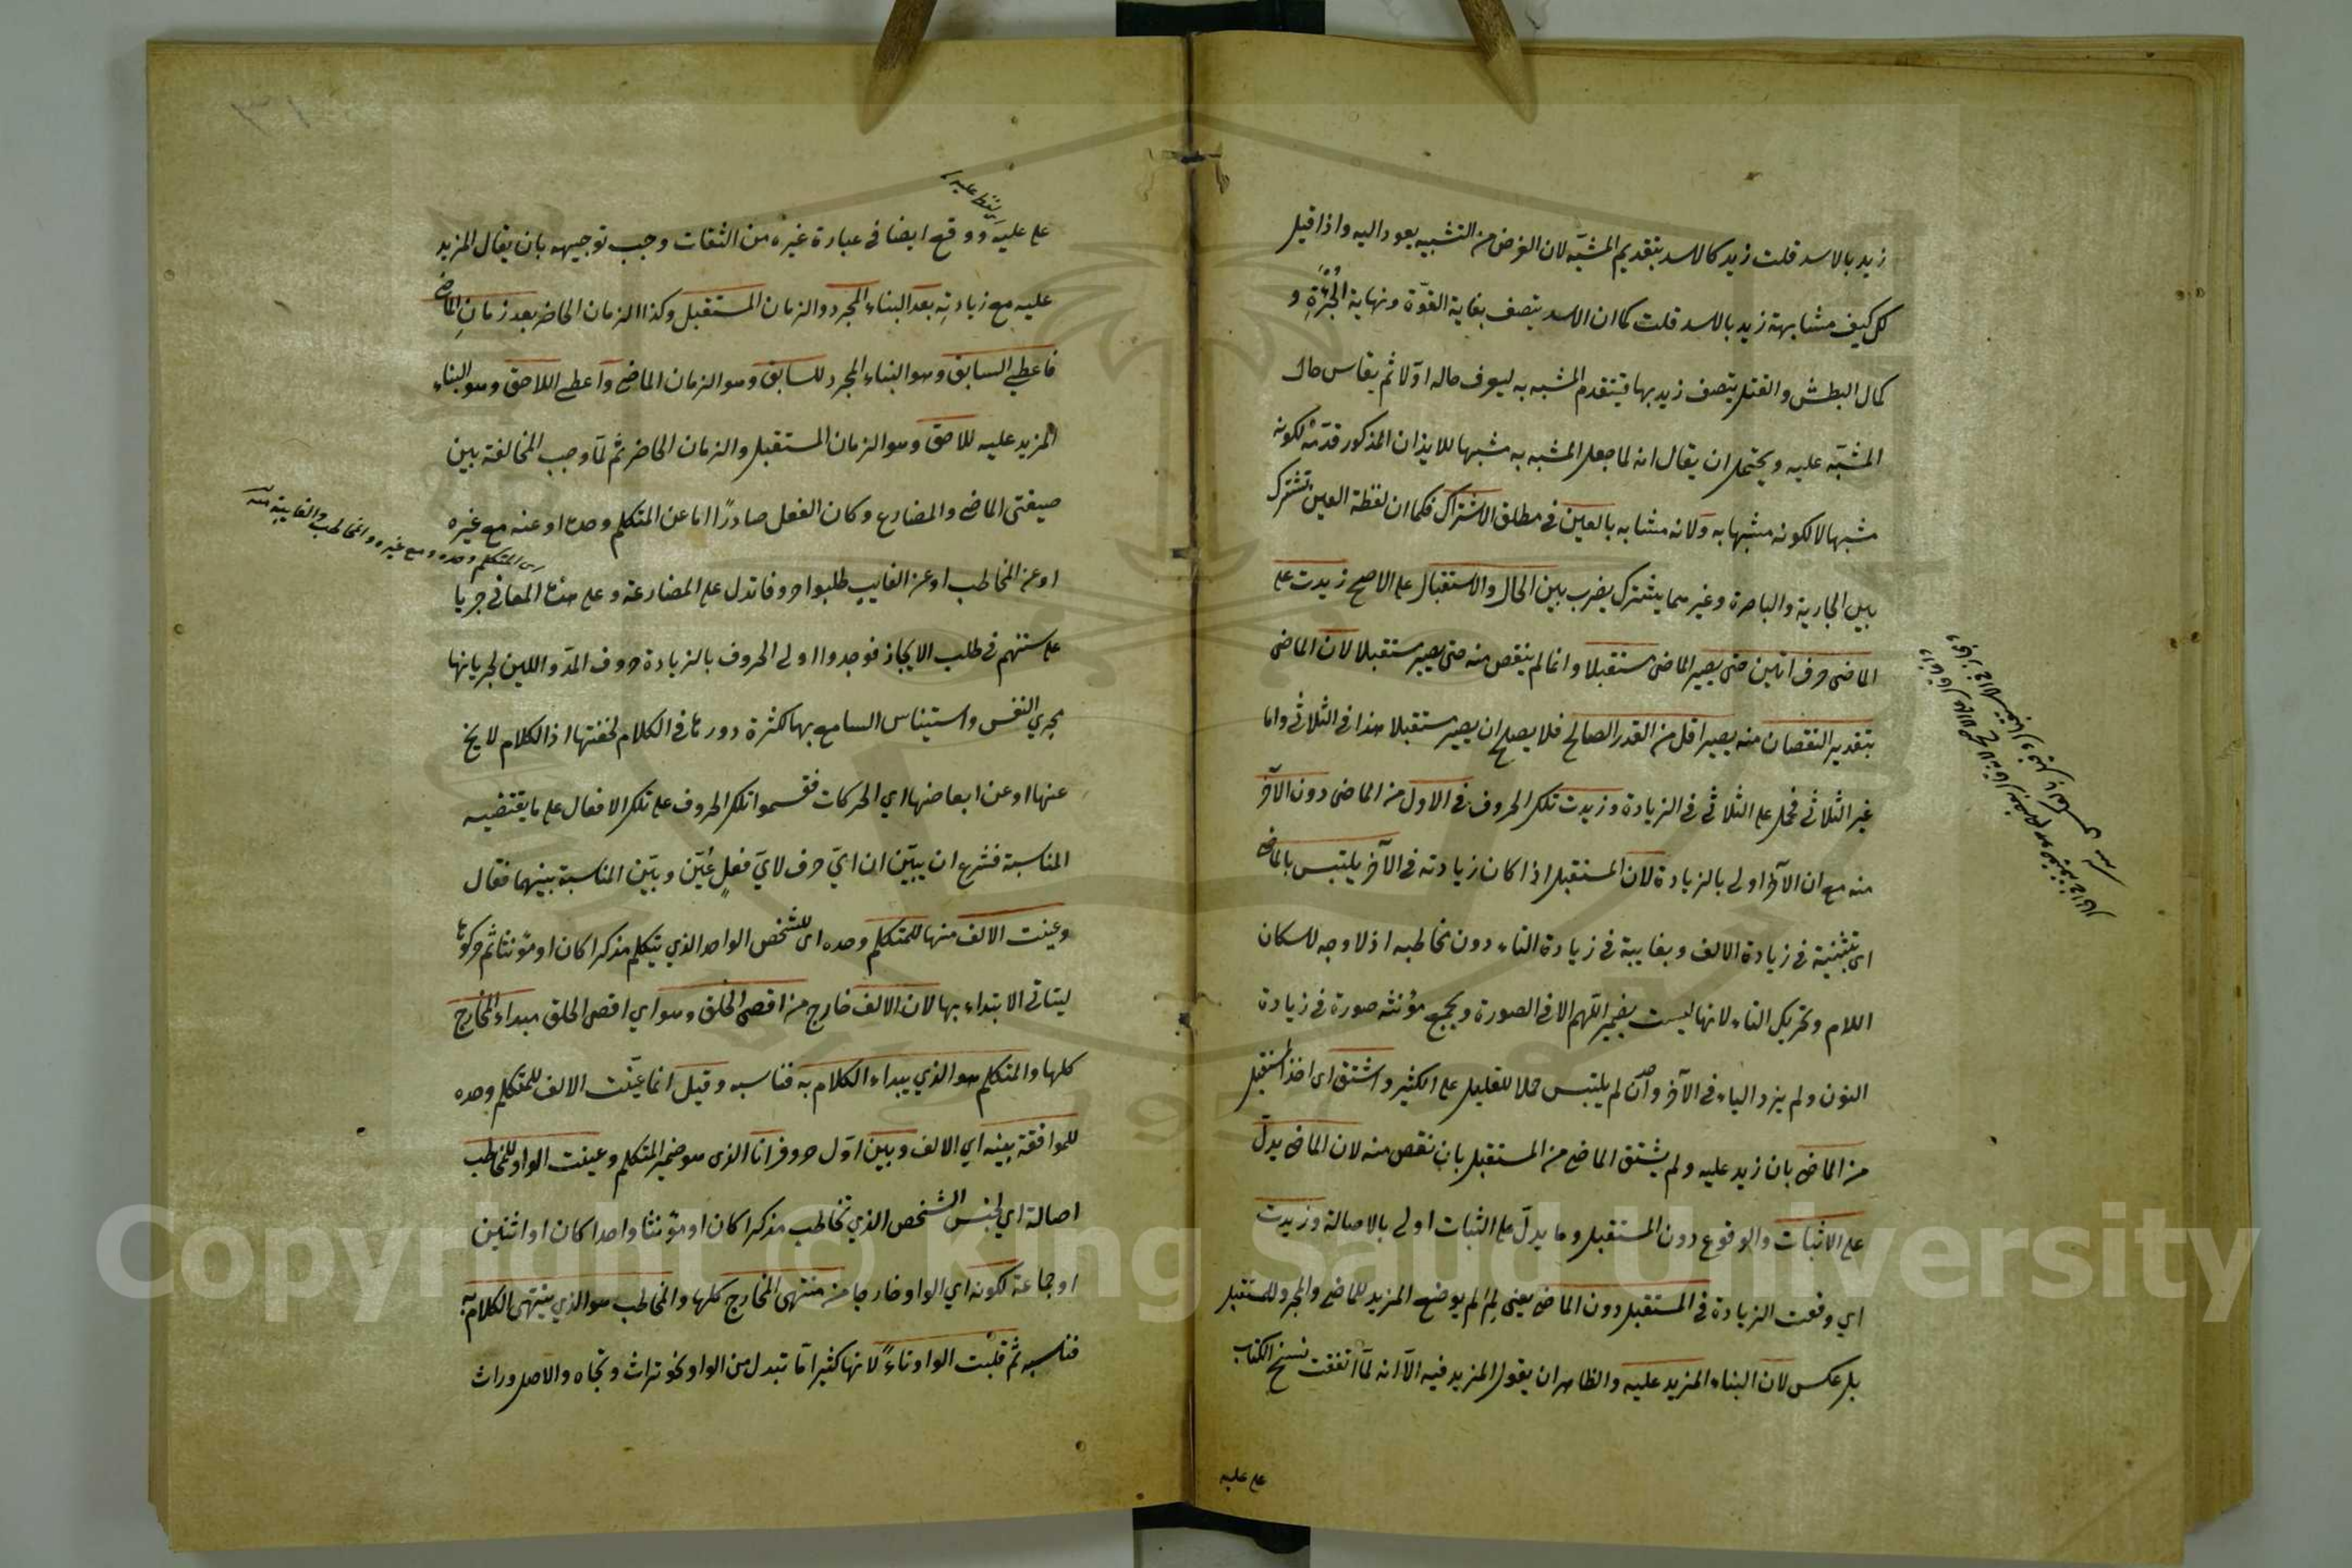 زيد بالاسد قلت زيد كالاسد بتقديم المشبّه لان الغرض من التشبيه يعود اليه واذا قيل
لك كيف مشابهة زيد بالاسد قلت كما ان الاسد يتصف بغاية القوّة ونهاية الجُرْءَةِ و
كمال البطش والقتل يتصف زيد بها فيتقدم المشبه به ليعرف حاله اوّلا ثم يقاس حال
المشبّه عليه ويحتمل ان يقال انه لما جعل المشبه به مشبها للايذان المذكور قدّمه لكونه
مشبها لا لكونه مشبها به ولانه مشابه بالعين في مطلق الاشتراك فكما ان لفظة العين تشترك
بين الجارية والباصرة وغيرهما يشترك يضرب بين الحال والاستقبال على الاصح زيدت على
الماضى حرف اتين حتى يصير الماضى مستقبلا وانما لم ينقص منه حتى يصير مستقبلا لان الماضى
بتقدير النقصان منه يصير اقل من القدر الصالح فلا يصلح ان يصير مستقبلا هذا في الثلاثي واما
غير الثلاثي فحمل على الثلاثي في الزيادة وزيدت تلك الحروف في الاول من الماضى دون الآخر
منه مع ان الآخر اولى بالزيادة لان المستقبل اذا كان زيادته في الآخر يلتبس بالماضى
اى بتثنيته في زيادة الالف وبغايبة في زيادة التاء دون مخاطبه اذ لا وجه لاسكان
اللام وتحريك التاء لانها ليست بضمير اللهم الا في الصورة وبجمع مؤنثه صورة في زيادة
النون ولم يزد الياء في الآخر وان لم يلتبس حملا للقليل على الكثير واشتق اى اخذ المستقبل
من الماضى بان زيد عليه ولم يشتق الماضى من المستقبل بان نقص منه لان الماضى يدلّ
على الاثبات والوقوع دون المستقبل وما يدلّ على الثبات اولى بالاصالة وزيدت
اي وقعت الزيادة في المستقبل دون الماضى يعنى لِمَ لم يوضع المزيد للماضى والمجرد للمستقبل
بل عكس لان البناء المزيد عليه والظاهر ان يقول المزيد فيه الّا انه لمّا اتفقت نسخ الكتاب
على عليه
على عليه ووقع ايضا في عبارة غيره من الثقات وجب توجيهه بان يقال المزيد
عليه مع زيادتِه بعد البناء المجرد والزمان المستقبل وكذا الزمان الحاضر بعد زمانِ الماضى
فاعطي السابق وهو البناء المجرد للسابق وهو الزمان الماضى واعطى اللاحق وهو البناء
المزيد عليه للاحق وهو الزمان المستقبل والزمان الحاضر ثم لمّا وجب المخالفة بين
صيغتى الماضى والمضارع وكان الفعل صادرًا اما عن المتكلم وحده او عنه مع غيره
اى المتكلم وحده ومع غيره والمخاطب والغايبة منه
او عن المخاطب او عن الغايب طلبوا حروفا تدل على المضارعة وعلى هذه المعاني جريا
على سننهم في طلب الايجاز فوجدوا اولى الحروف بالزيادة حروف المدّ واللين لجريانها
مجري النفس واستيناس السامع بها لكثرة دورها في الكلام لخفتها اذ الكلام لا يخ
عنها او عن ابعاضها اي الحركات فقسموا تلك الحروف على تلك الافعال على ما يقتضيه
المناسبة فشرع ان يبيّن ان ايّ حرف لايّ فعلٍ عُيّن وبيّن المناسبة بينهما فقال
وعينت الالف منها للمتكلم وحده اى للشخص الواحد الذي يتكلم مذكرا كان او مؤنثا ثم حركوها
ليتاتى الابتداء بها لان الالف خارج من اقصى الحلق وهو اي اقصى الحلق مبداء المخارج
كلها والمتكلم هو الذي يبداء الكلام به فناسبه وقيل انما عينت الالف للمتكلم وحده
للموافقة بينه اي الالف وبين اوّل حروف انا الذى هو ضمير المتكلم وعينت الواو للمخاطب
اصالة اي لجنس الشخص الذي تخاطب مذكرا كان او مؤنثا واحدا كان او اثنين
او جماعة لكونه اي الواو خارجا من منتهى المخارج كلها والمخاطب هو الذي ينتهى الكلام به
فناسبه ثم قلبت الواو تاءً لانها كثيرا مّا تبدل من الواو نحو تراث وتجاه والاصل وراث